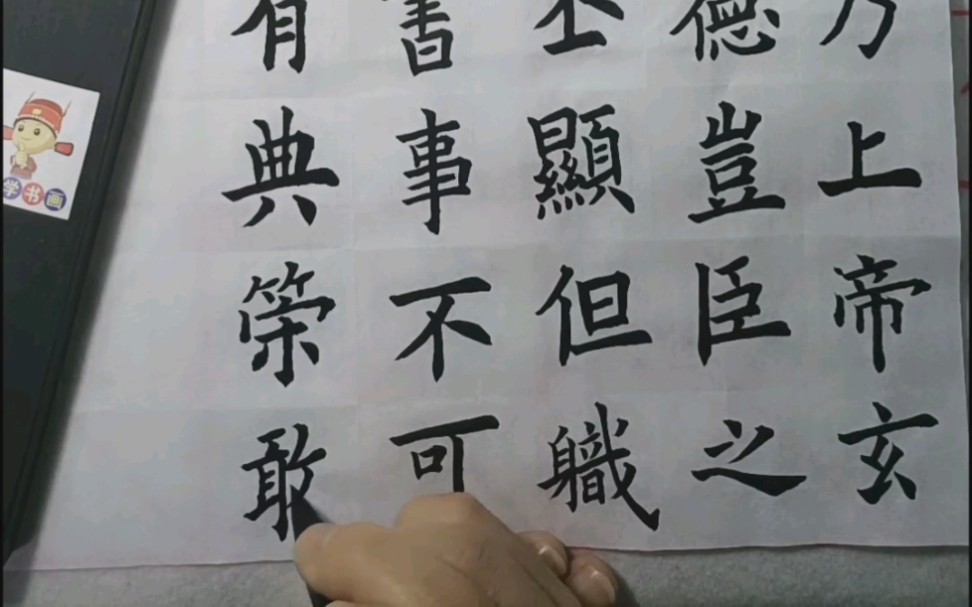 乃上帝玄
德豈臣之
丕顯但軄
書事不可
有典筞敢
学书画